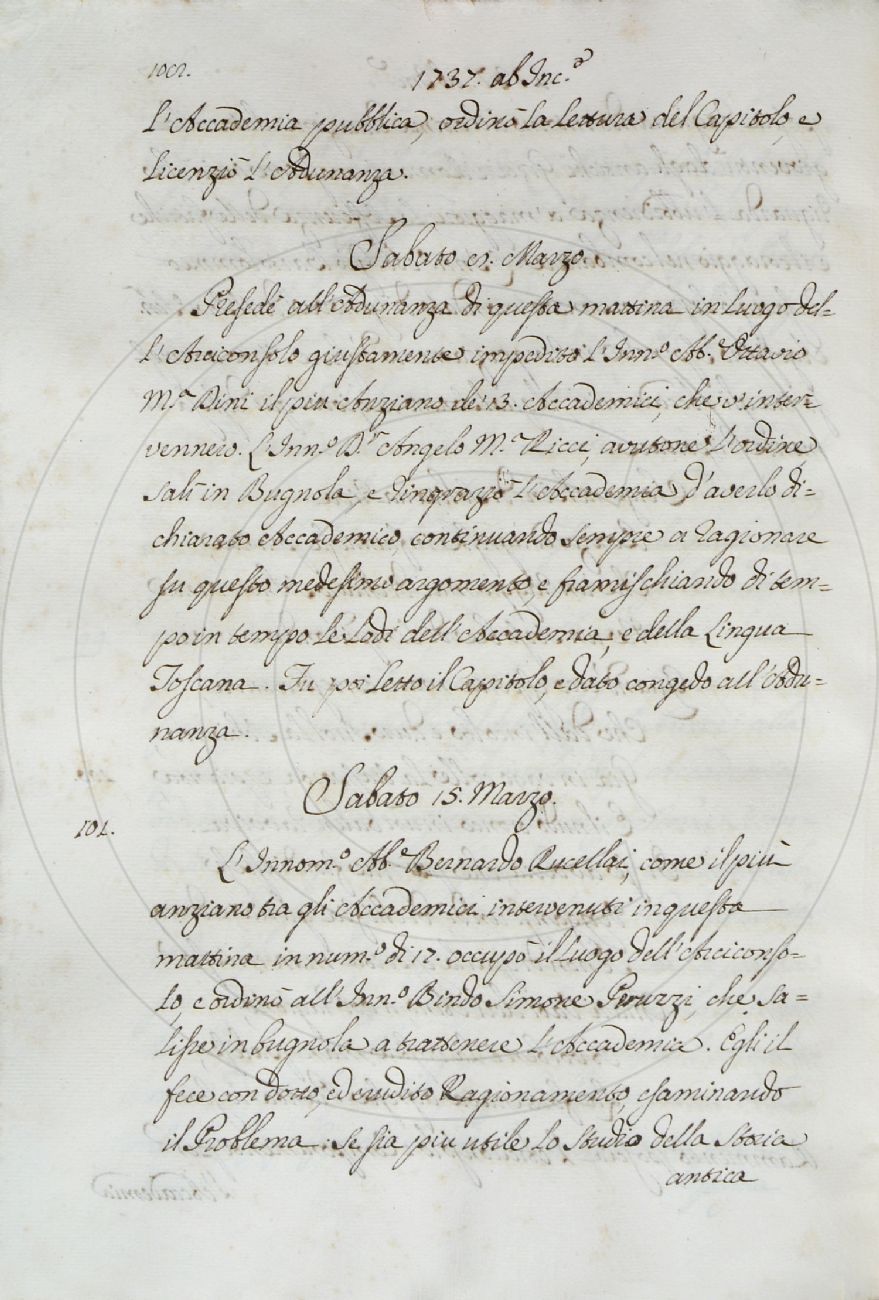 1737. ab Inc.e
L'Accademia pubblica, ordinò la Lettura del Capitolo, e
licenziò l'Adunanza.
Sabato 1. Marzo.
Presedè all'Adunanza di questa mattina in luogo del-
l'Arciconsolo giustamente impedito l'Inn.o Ab.e Ottavio
M.a Dini il più Anziano de' 13. Accademici, che v'inter-
vennero. L'Inn.o D.r Angelo M.a Ricci, avutone l'ordine
salì in Bugnola, e ringraziò l'Accademia d'averlo di-
chiarato Accademico, continuando sempre a ragionare
su questo medesimo argomento, e framischiando di tem-
po in tempo le Lodi dell'Accademia, e della Lingua
Toscana. Fu poi letto il Capitolo, e dato congedo all'Adu-
nanza.
Sabato 15. Marzo.
101.
L'Innom.o Ab.e Bernardo Rucellai, come il più
anziano tra gli Accademici intervenuti in questa
mattina in num.o di 17. occupò il luogo dell'Arciconso-
lo, e ordinò all'Inn.o Bindo Simone Peruzzi, che sa-
lisse in bugnola a trattenere l'Accademia. Egli il
fece con dotto, ed erudito Ragionamento, esaminando
il Problema: se sia più utile lo studio della storia
antica